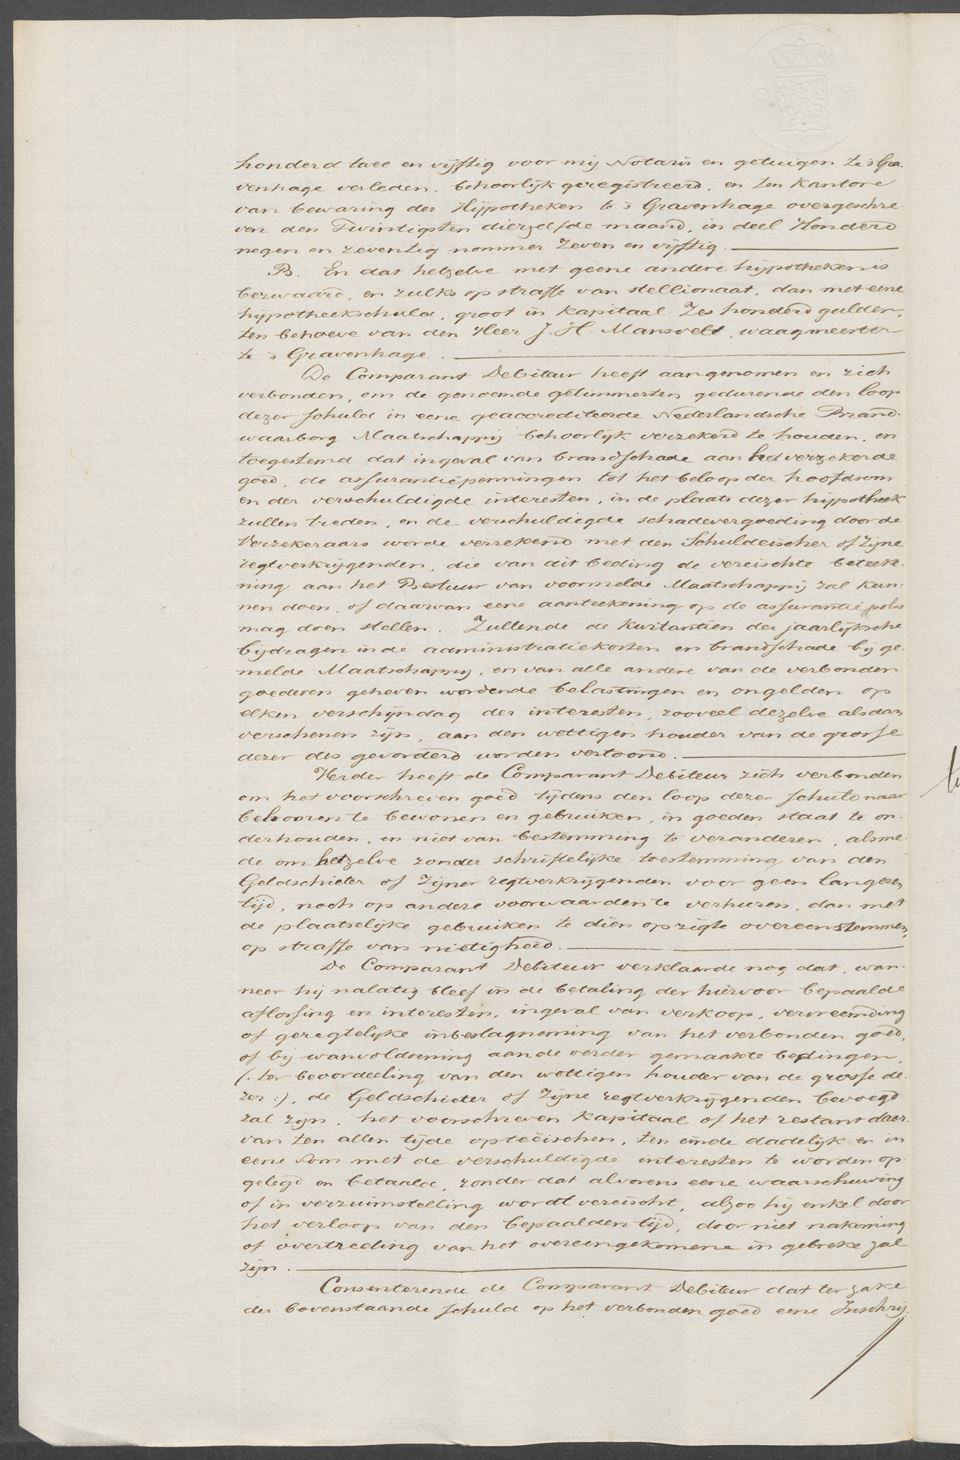 honderd twee en vijftig voor mij Notaris en getuigen te 's Gra-
venhage verleden, behoorlijk geregistreerd, en ten kantore
van bewaring der Hijpotheken te 's Gravenhage overgeschre-
ven den Twintigsten diezelfde maand, in deel Honderd
negen en zeventig nommer Zeven en vijftig.
B. En dat hetzelve met geene andere hijpotheken is
bezwaard, en zulks op straffe van stellionaat, dan met eene
hijpotheekschuld, groot in kapitaal Zes honderd gulden,
ten behoeve van den Heer J. H. Mansvelt, waagmeester
te 's Gravenhage.
De Comparant Debiteur heeft aangenomen en zich
verbonden, om de genoemde getimmerten gedurende den loop
dezer schuld in eene geaccrediteerde Nederlandsche Brand-
waarborg Maatschappij behoorlijk verzekerd te houden, en
toegestemd dat ingeval van brandschade aan het verzekerde
goed, de assurantiepenningen tot het beloop der hoofdsom
en der verschuldigde interesten, in de plaats dezer hijpotheek
zullen treden, en de verschuldigde schadevergoeding door de
Verzekeraars worde verrekend met den Schuldeischer of Zijne
regtverkrijgenden, die van dit beding de vereischte beteek-
ning aan het Bestuur van voormelde Maatschappij zal kun-
nen doen, of daarvan eene aanteekening op de assurantie polis
mag doen stellen. Zullende de kwitantien der jaarlijksche
bijdragen in de administratiekosten en brandschade bij ge-
melde Maatschappij, en van alle andere van de verbonden
goederen geheven wordende belastingen en ongelden op
elken verschijndag der interesten, zooveel dezelve alsdan
verschenen zijn, aan den wettigen houder van de grosse
dezer des gevorderd worden vertoond.
Verder heeft de Comparant Debiteur zich verbonden
om het voorschreven goed tijdens den loop dezer schuld naar
behooren te bewonen en gebruiken, in goeden staat te on-
derhouden, en niet van bestemming te veranderen, alsme-
de om hetzelve zonder schriftelijke toestemming van den
Geldschieter of Zijner regtverkrijgenden voor geen langeren
tijd, noch op andere voorwaarden te verhuren, dan met
de plaatselijke gebruiken te dien opzigte overeenstemmen,
op straffe van nietigheid.
De Comparant Debiteur verklaarde nog dat, wan-
neer hij nalatig bleef in de betaling der hiervoor bepaalde
aflossing en interesten, ingeval van verkoop, vervreemding
of geregtelijke inbeslagneming van het verbonden goed,
of bij wanvoldoening aan de verder gemaakte bedingen,
(: ter beoordeeling van den wettigen houder van de grosse de-
zer :), de Geldschieter of Zijne regtverkrijgenden bevoegd
zal zijn, het voorschreven kapitaal of het restant daar-
van ten allen tijde opteëischen, ten einde dadelijk en in
eene som met de verschuldigde interesten te worden op-
gelegd en betaald, zonder dat alvorens eene waarschuwing
of in verzuimstelling wordt vereischt, alzoo hij enkel door
het verloop van den bepaalden tijd, door niet nakoming
of overtreding van het overeengekomene in gebreke zal
zijn.
Consenterende de Comparant Debiteur dat ter zake
der bovenstaande schuld op het verbonden goed eene Inschrij-